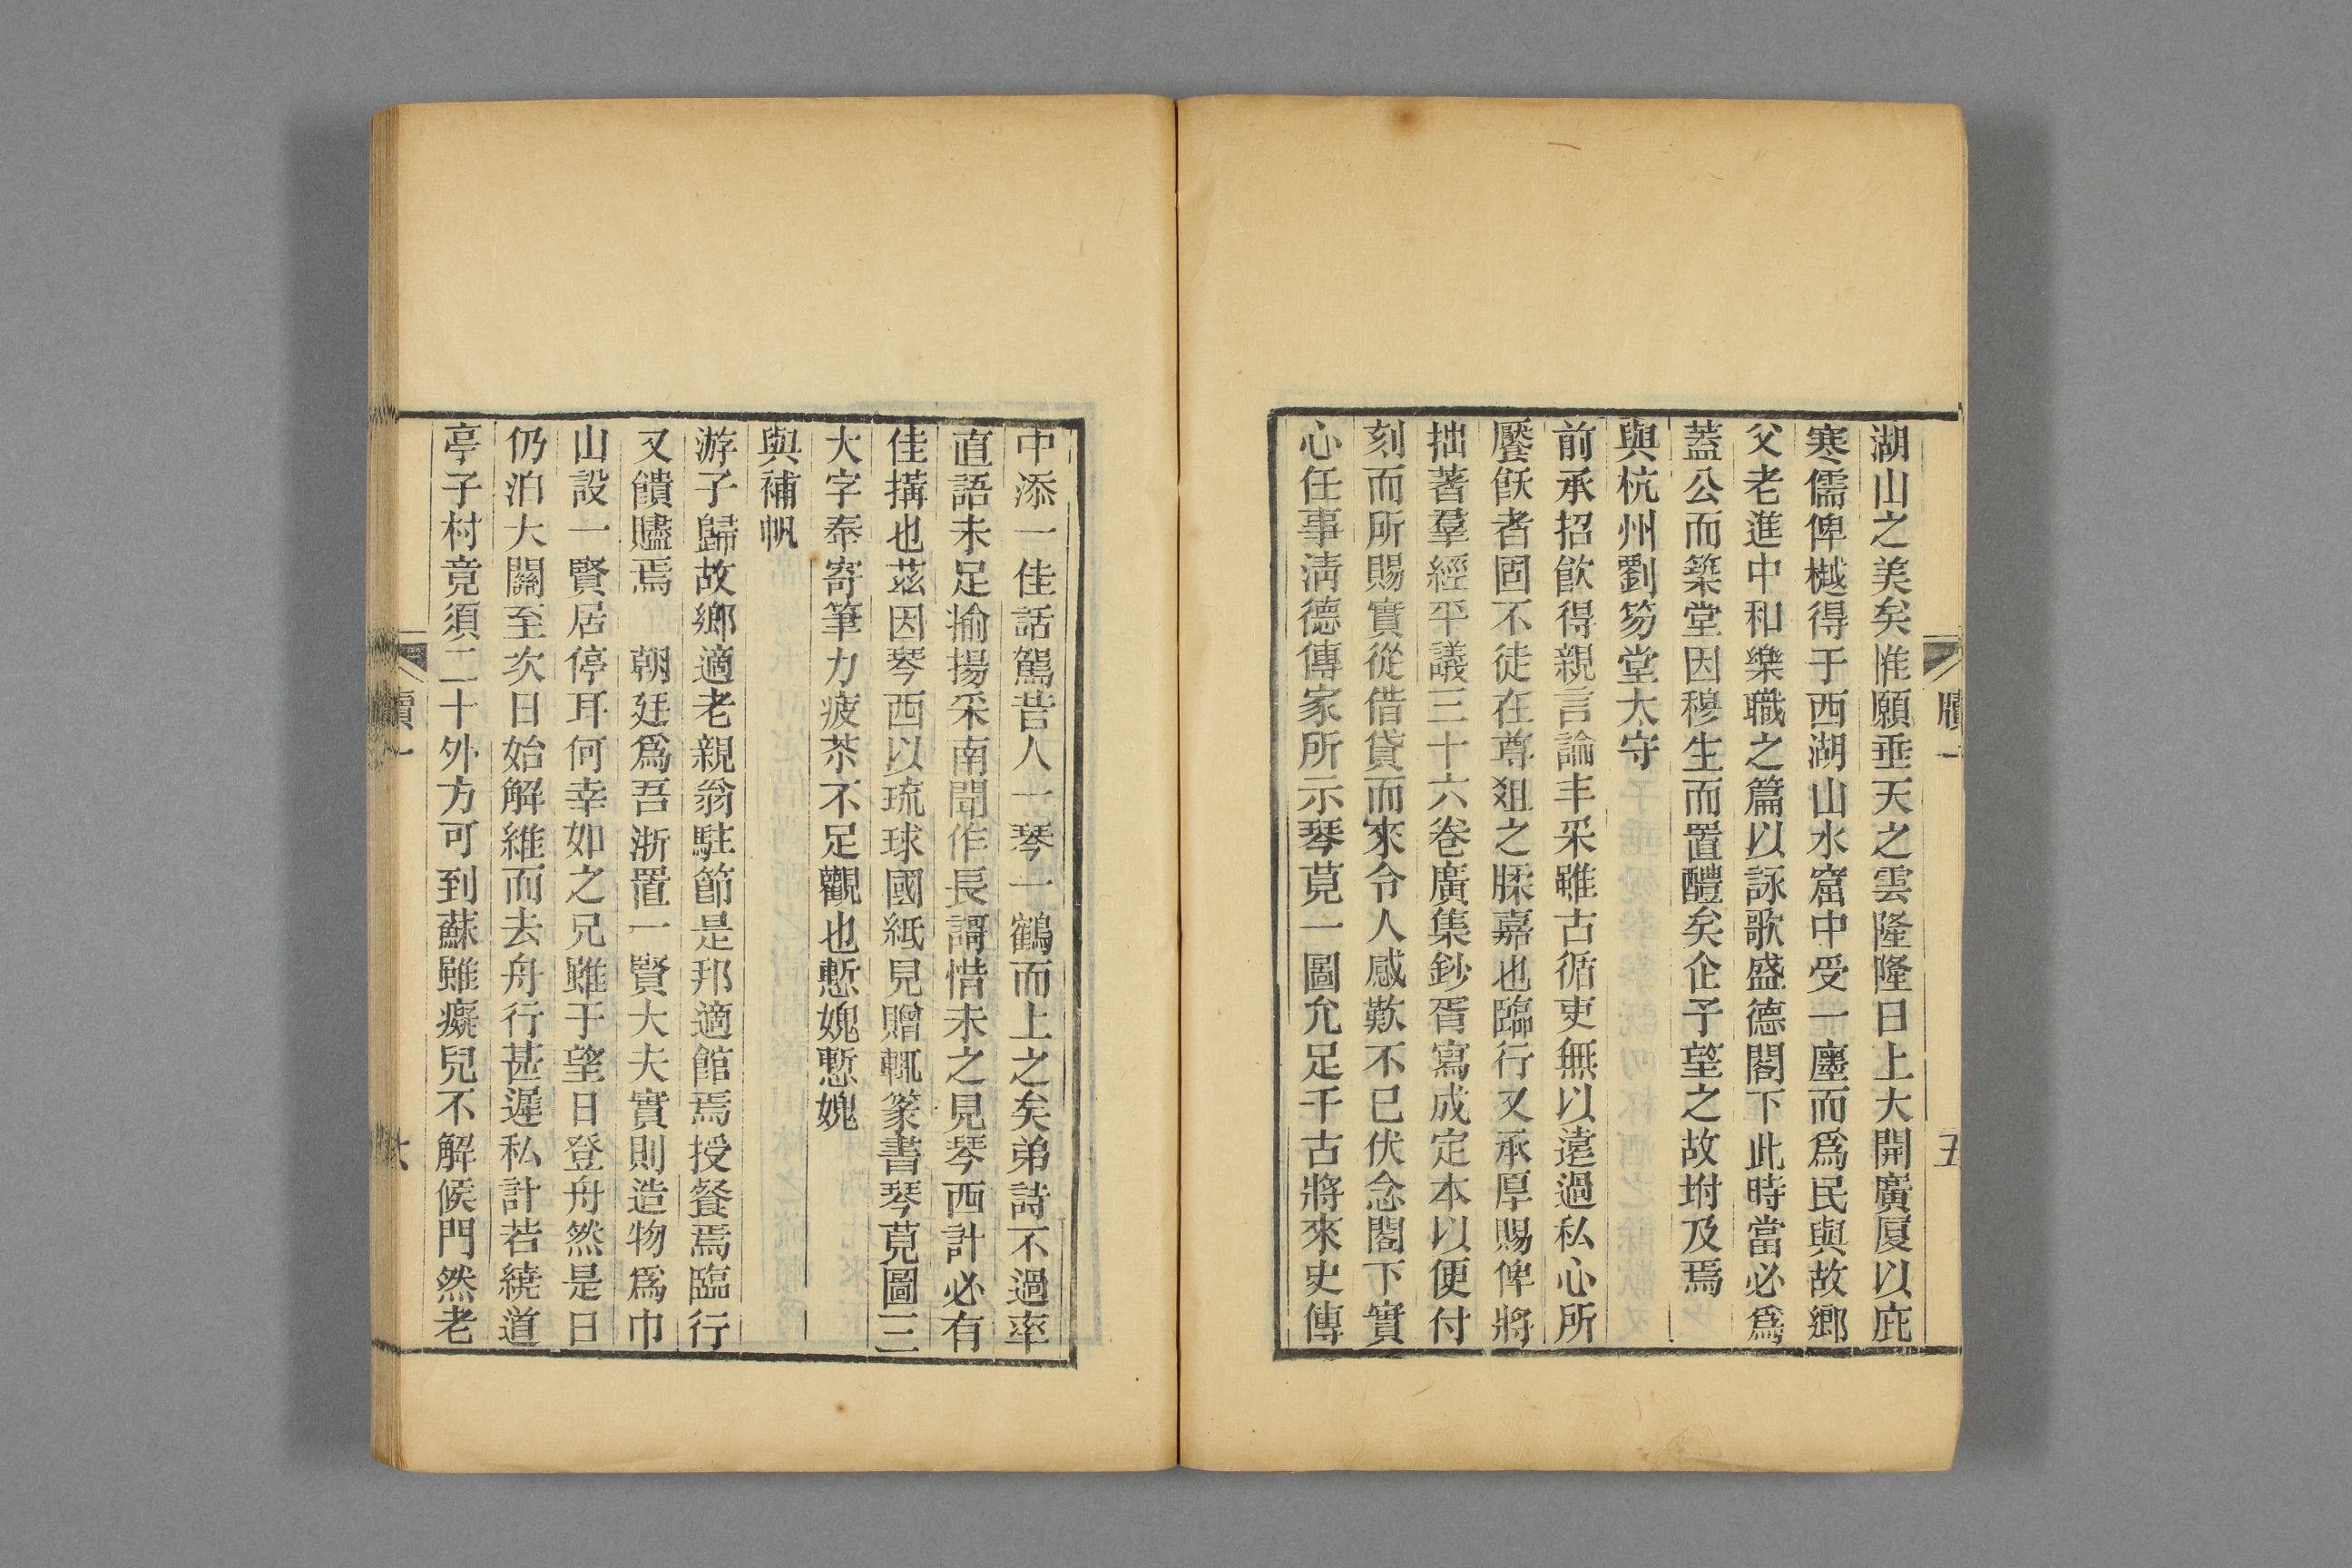 牘一
五
湖山之美矣惟願垂天之雲隆隆日上大開廣厦以庇
寒儒俾樾得于西湖山水窟中受一廛而爲民與故鄉
父老進中和樂職之篇以詠歌盛德閣下此時當必爲
蓋公而築堂因穆生而置醴矣企予望之故坿及焉
與杭州劉笏堂太守
前承招飮得親言論丰采雖古循吏無以遠過私心所
饜飫者固不徒在尊俎之腬嘉也臨行又承厚賜俾將
拙著羣經平議三十六卷廣集鈔胥寫成定本以便付
刻而所賜實從借貸而來令人感歎不已伏念閣下實
心任事淸德傳家所示琴莧一圖允足千古將來史傳
中添一佳話駕昔人一琴一鶴而上之矣弟詩不過率
直語未足揄揚采南聞作長謌惜未之見琴西計必有
佳搆也茲因琴西以琉球國紙見贈輒篆書琴莧圖三
大字奉寄筆力疲苶不足觀也慙媿慙媿
與補帆
游子歸故鄉適老親翁駐節是邦適館焉授餐焉臨行
又饋贐焉朝廷爲吾浙置一賢大夫實則造物爲巾
山設一賢居停耳何幸如之兄雖于望日登舟然是日
仍泊大關至次日始解維而去舟行甚遲私計若繞道
亭子村竟須二十外方可到蘇雖癡兒不解候門然老
牘一
六